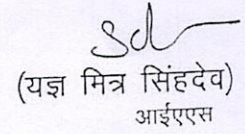 sd
(यज्ञ मित्र सिंहदेव)
आईएएस